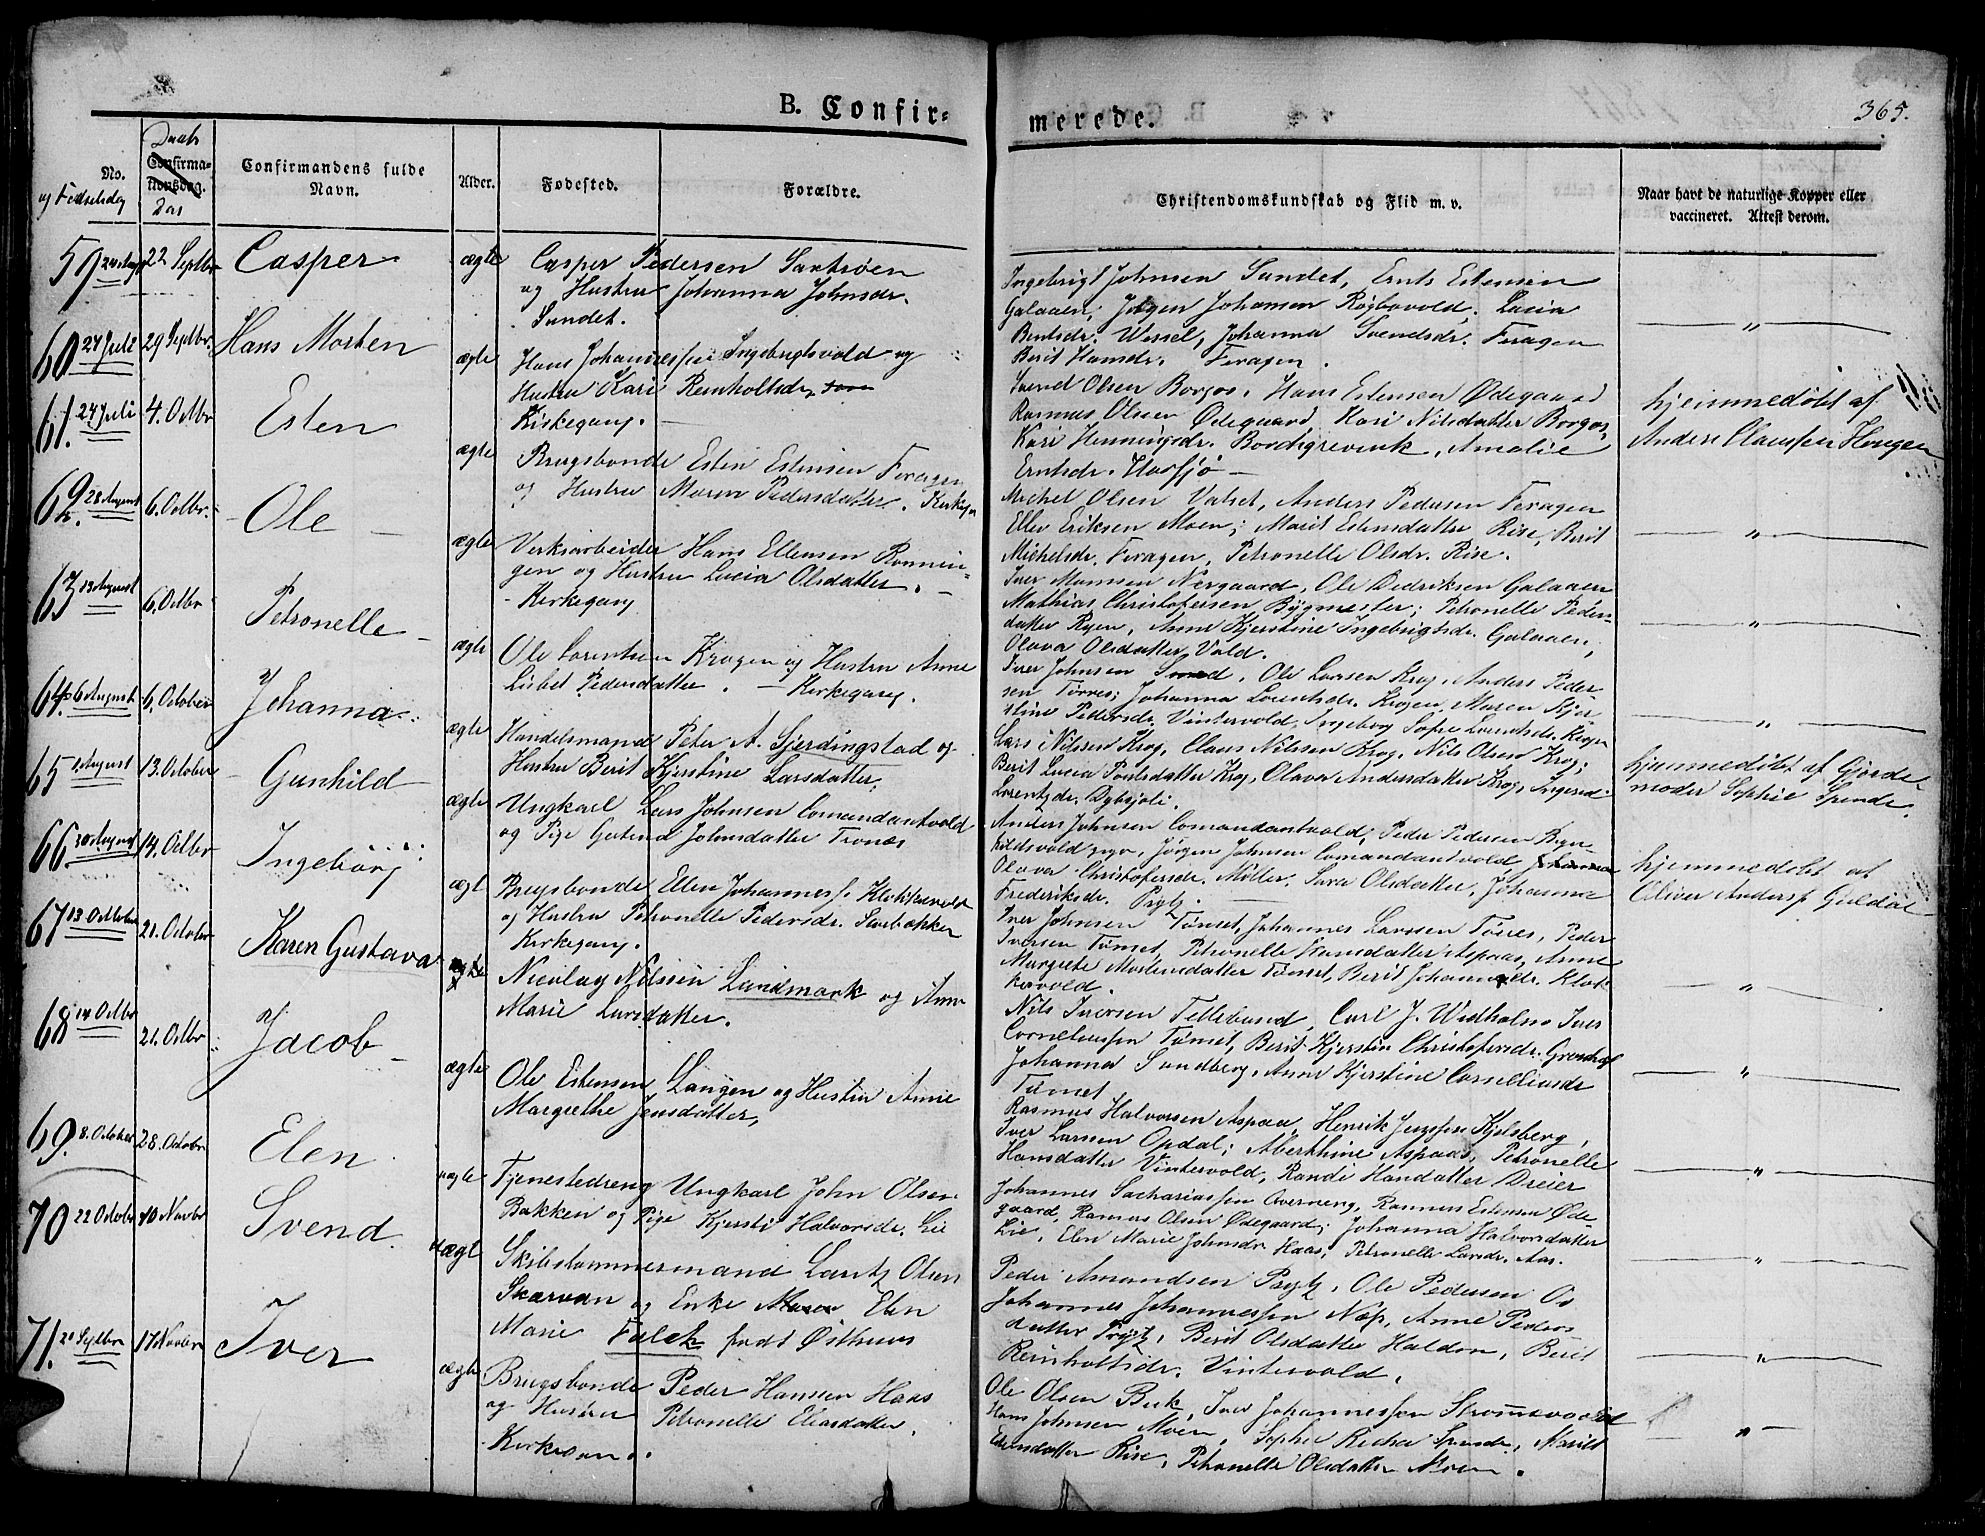 B. Confir=
merede.
365.
No.
og Fødselsdag
Daab
Confirma-
tionsdag.
Confirmandens fulde
Navn.
Alder.
Fødested.
Forældre.
Christendomskundskab og Flid m. v.
Naar havt de naturlige Kopper eller
vaccineret. Attest derom.
59 22 Septbr Casper ægte
Casper Pedersen
og Hustru Johanna Johnsdr.
Sundet.
Ingebrigt Johnsen Sundet, Estensen
Galaaen, Jørgen Johansen Lucia
Berntsdr. Wessel, Johanna Svendsdr. Feragen
Berit Hansdr. Feragen.
— „ —
60 24 Juli 29 Septbr. Hans Morten ægte
Hans Johannessen Ingebrigtsvold og
Hustru Kari Reinholtsdr.
Kirkegang. —
Svend Olsen Borgos, Hans Estensen Ødegaard
Rasmus Olsen Ødegaard, Kari Nilsdatter Borgos,
Kari Henningsdr. Amalie
Erntsdr. Hosjø —
hjemmedøbt af
Anders Claussen
61. 24 Juli 4. Octbr Esten ægte
Brugsbonde Esten Estensen Feragen
og Hustru Maren Pedersdatter.
Michel Olsen Valset, Anders Pedersen Feragen
Ellev Eriksen Moen; Marit Estensdatter Rise, Berit
Michelsdr. Feragen, Petronelle Olsdr. Rise.
— „ —
62. 28 August 6. Octbr. Ole ægte
Verksarbeider Hans Ellensen Rønnin-
gen og Hustru Lucia Olsdatter. —
- Kirkegang
Iver Nergaard, Ole Dedriksen Galaaen
Mathias Christofersen Bygmester; Petronelle Peders-
datter Ryen, Anne Kjerstine Ingebrigtsdr. Galaaen,
Olava Olsdatter Vold.
— „ —
63 13 August 6. Octbr Petronelle ægte
Ole Lorentsen Krogen og Hustru Anne
Lisbet Pedersdatter. — Kirkegang.
Iver Johnsen Ole Larsen Krog, Anders Peder-
sen Tørres; Johanna Lorentsdr. Krogen, Maren Kjer
stine Pedersdr. Vintervold, Ingeborg Sofie Lorentsdr. Krogen
— „ —
64. 6 August 6. October Johanna. ægte
Handelsmand Peter A. Gjerdingstad og
Hustru Berit Kjerstine Larsdatter,
Lars Nilssen Krog, Claus Nilssen Krog, Nils Olsen Krog;
Berit Lucia Poulsdatter Krog, Olava Andersdatter Krog, Ingered
Lorentzdr. Dybsjøli.
hjemmedøbt af Gjorde
moder Sophie Spende.
65 August 13. October Gunhild
Ungkarl Lars Johnsen Comandantvold
og Pige Johnsdatter Tronæs
Anders Johnsen Comandantvold, Peder Pedersen
Jørgen Johnsen Comandantvold
Olava Christofersdr. Møller. Sara Olsdatter, Johanna
Frederiksdr. Prytz.
hjemmedøbt af
Oliver Anders
66 30 August 14. Octbr Ingeborg
Brugsbonde Ellen Johannes. Klokkervold
og Hustru Petronelle Pedersdr.
Kirkegang.
Iver Johnsen Tømset, Johannes Larssen Tørres, Peder
Iversen Tømset, Petronelle Hansdatter Aspaas, Anne
Margrete Mortensdatter Tømset, Berit Klok
kervold.
— „ —
67 13 October 21. Octobr Karen Gustava ægte
Nicolay Nilssen Lundmark og Anne
Marie Larsdatter.
Nils Iversen Carl J. Widholm Iver
Corneliussen Tømset, Berit Kjerstin Christofersdr.
Johanna Sundberg, Anne Kjerstine Corneliusdr
Tømset
— „ —
68 14 Octbr 21. Octbr Jacob ægte
Ole Estensen Langen og Hustru Anne
Margrethe Jensdatter,
Rasmus Halvorsen Aspaas, Henrik Kjelsberg,
Iver Larsen Opdal; Aspaas, Petronelle
Hansdatter Vintervold, Randi Hansdatter Dreier
— „ —
69. 8. October 28. Octobr Elen uægte
Tjenestedreng Ungkarl John Olsen
Bakken og Pige Kjersti Halvorsdr. Lie
Johannes Rasmus Estensen Øde
gaard, Rasmus Olsen Ødegaard; Johanna Halvorsdatter
Lie, Elen Marie Johnsdr Haas, Petronelle Larsdr. Aas.
— „ —
70 22 Octobr 10 Novbr Svend. uægte
Skibstømmermand Olsen
Skarvan og Enke Elen
Marie Falck født Østhuus
Peder Amundsen Prytz, Ole Pedersen Os
Johannes Johannessen Næs, Anne Peders
datter Prytz, Berit Olsdatter Haldon, Berit
Reinholtsdr. Vintervold.
— „ —
71. Septbr 17 Novbr Iver ægte
Brugsbonde Peder Hansen Haas
og Hustru Petronelle
Ole Olsen Iver Johannessen
Hans Johnsen Moen, Sophie Marit
Estensdatter Rise, Petronelle Olsdatter Moen.
„ —